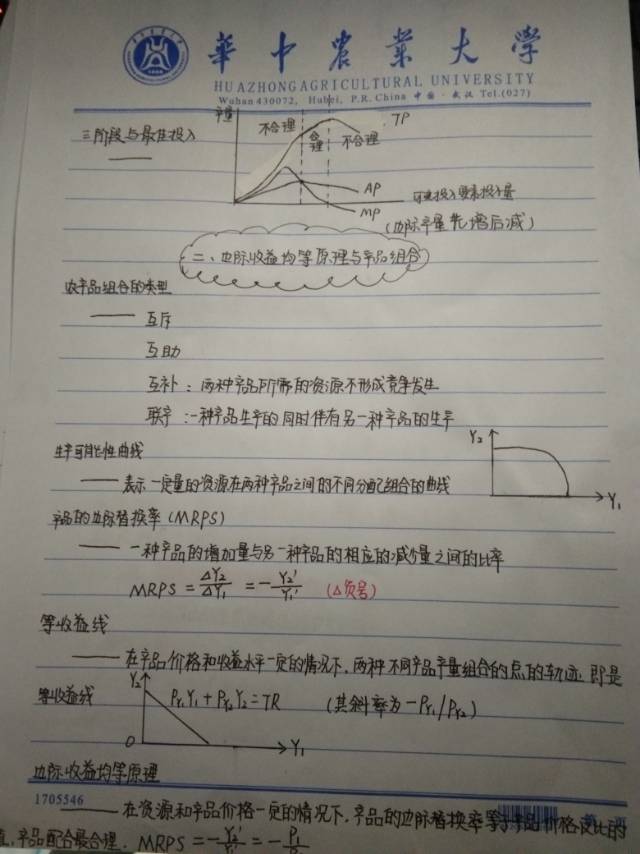 華中農業大學
HUAZHONG AGRICULTURAL UNIVERSITY
Wuhan 430072, Hubei, P.R. China 中国·武汉 Tel.(027)
产量
三阶段与最佳投入
不合理
合理
不合理
TP
AP
MP
可变投入要素投入量
(边际产量先增后减)
二、边际收益均等原理与产品组合
农产品组合的类型
—— 互斥
互助
互补：两种产品所需的资源不形成竞争发生
联产：一种产品生产的同时伴有另一种产品的生产
生产可能性曲线
Y₂
—— 表示一定量的资源在两种产品之间的不同分配组合的曲线
Y₁
产品的边际替换率(MRPS)
—— 一种产品的增加量与另一种产品的相应的减少量之间的比率
MRPS = ΔY₂/ΔY₁ = -Y₂'/Y₁' (△负号)
等收益线
—— 在产品价格和收益水平一定的情况下，两种不同产品产量组合的点的轨迹 即是
等收益线
Y₂
P_Y₁Y₁+P_Y₂Y₂=TR (其斜率为-P_Y₁/P_Y₂)
0
Y₁
边际收益均等原理
1705546
—— 在资源和产品价格一定的情况下，产品的边际替换率等于产品价格反比的
值，产品配合最合理. MRPS = -Y₂'/Y₁' = -P₁